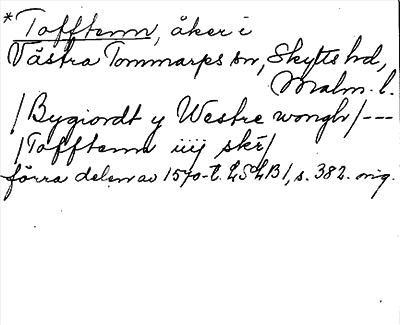 *Tofftenn, åker i
Västra Tommarps sn, Skytts hd,
Malm. l.
/Bygiordt y Westre wongh/---
/Tofftenn iiij
förra delen av 1570-t. LSLB1, s. 382. orig.